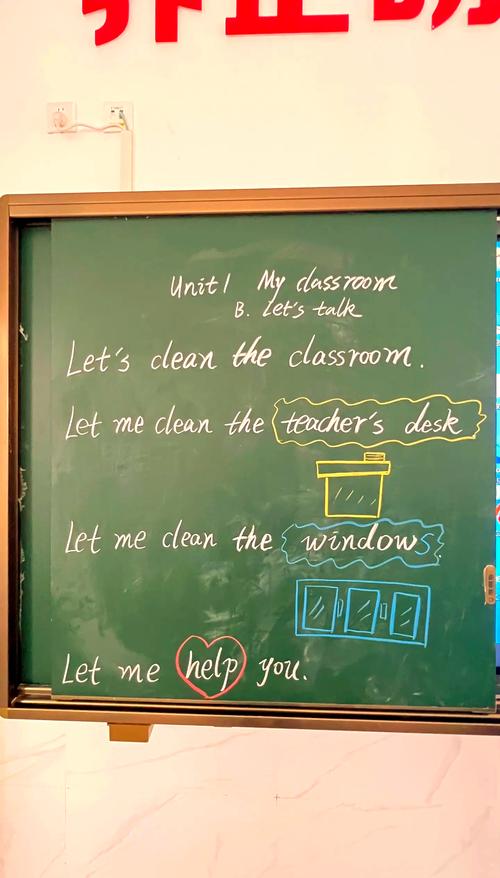 Unit 1 My classroom
B. Let's talk
Let's clean the classroom.
Let me clean the teacher's desk
Let me clean the windows.
Let me help you.